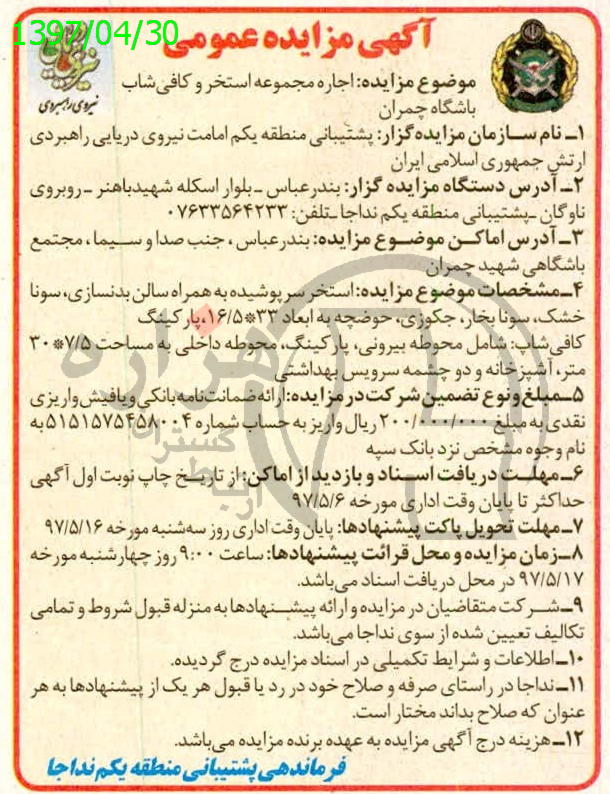 1397/04/30
آگهی مزایده عمومی
نیروی راهبردی
موضوع مزایده: اجاره مجموعه استخر و کافی‌شاپ
باشگاه چمران
۱ـ نام سازمان مزایده‌گزار: پشتیبانی منطقه یکم امامت نیروی دریایی راهبردی
ارتش جمهوری اسلامی ایران
۲ـ آدرس دستگاه مزایده گزار: بندرعباس ـ بلوار اسکله شهیدباهنر ـ روبروی
ناوگان ـ پشتیبانی منطقه یکم نداجا ـ تلفن: ۰۷۶۳۳۵۶۴۲۳۳
۳ـ آدرس اماکن موضوع مزایده: بندرعباس، جنب صدا و سیما، مجتمع
باشگاهی شهید چمران
۴ـ مشخصات موضوع مزایده: استخر سرپوشیده به همراه سالن بدنسازی، سونا
خشک، سونا بخار، جکوزی، حوضچه به ابعاد ۳۳*۱۶/۵، پارکینگ
کافی‌شاپ: شامل محوطه بیرونی، پارکینگ، محوطه داخلی به مساحت ۷/۵*۳۰
متر، آشپزخانه و دو چشمه سرویس بهداشتی
۵ـ مبلغ و نوع تضمین شرکت در مزایده: ارائه ضمانت‌نامه بانکی و یا فیش واریزی
نقدی به مبلغ ۲۰۰/۰۰۰/۰۰۰ ریال واریز به حساب شماره ۵۱۵۱۵۷۵۴۵۸۰۰۴ به
نام وجوه مشخص نزد بانک سپه
۶ـ مهلت دریافت اسناد و بازدید از اماکن: از تاریخ چاپ نوبت اول آگهی
حداکثر تا پایان وقت اداری مورخه ۹۷/۵/۶
۷ـ مهلت تحویل پاکت پیشنهادها: پایان وقت اداری روز سه‌شنبه مورخه ۹۷/۵/۱۶
۸ـ زمان مزایده و محل قرائت پیشنهادها: ساعت ۹:۰۰ روز چهارشنبه مورخه
۹۷/۵/۱۷ در محل دریافت اسناد می‌باشد.
۹ـ شرکت متقاضیان در مزایده و ارائه پیشنهادها به منزله قبول شروط و تمامی
تکالیف تعیین شده از سوی نداجا می‌باشد.
۱۰ـ اطلاعات و شرایط تکمیلی در اسناد مزایده درج گردیده.
۱۱ـ نداجا در راستای صرفه و صلاح خود در رد یا قبول هر یک از پیشنهادها به هر
عنوان که صلاح بداند مختار است.
۱۲ـ هزینه درج آگهی مزایده به عهده برنده مزایده می‌باشد.
فرماندهی پشتیبانی منطقه یکم نداجا
هزاره